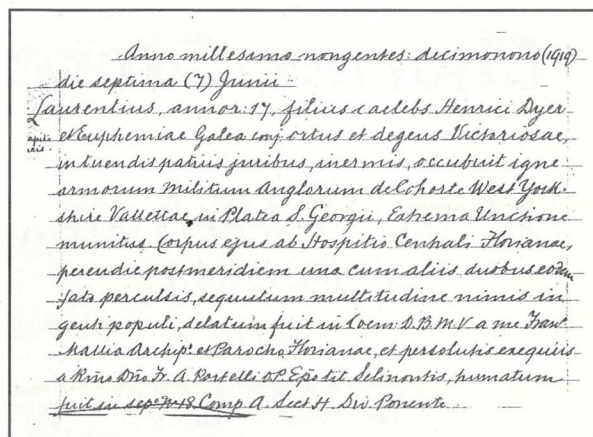 Anno millesimo nongentes: decimonono (1919)
die septima (7) Junii
Laurentius, annor: 17, filius caelebs Henrici Dyer
et Euphemiae Galea conj. ortus et degens Victoriosae,
in tuendis patriis juribus, inermis, occubuit igne
armorum Militum Anglorum de Cohorte West York-
shire Vallettae, in Platea S. Georgii, Extrema Unctione
munitus. Corpus ejus ab Hospitio Centrali Florianae,
perendie postmeridiem una cum aliis duobus eodem
fato perculsis, sequutum multitudine nimis in
genti populi, delatum fuit in Coem: D.B.M.V a me Fran.
Mallia Archip. et Parocho Florianae, et persolutis exequiis
a Rmo Dno Fr. A Portelli O.P. Epo tit. Selinontis, humatum
fuit in sep. No 18. Comp A. Sect H. Div Ponente